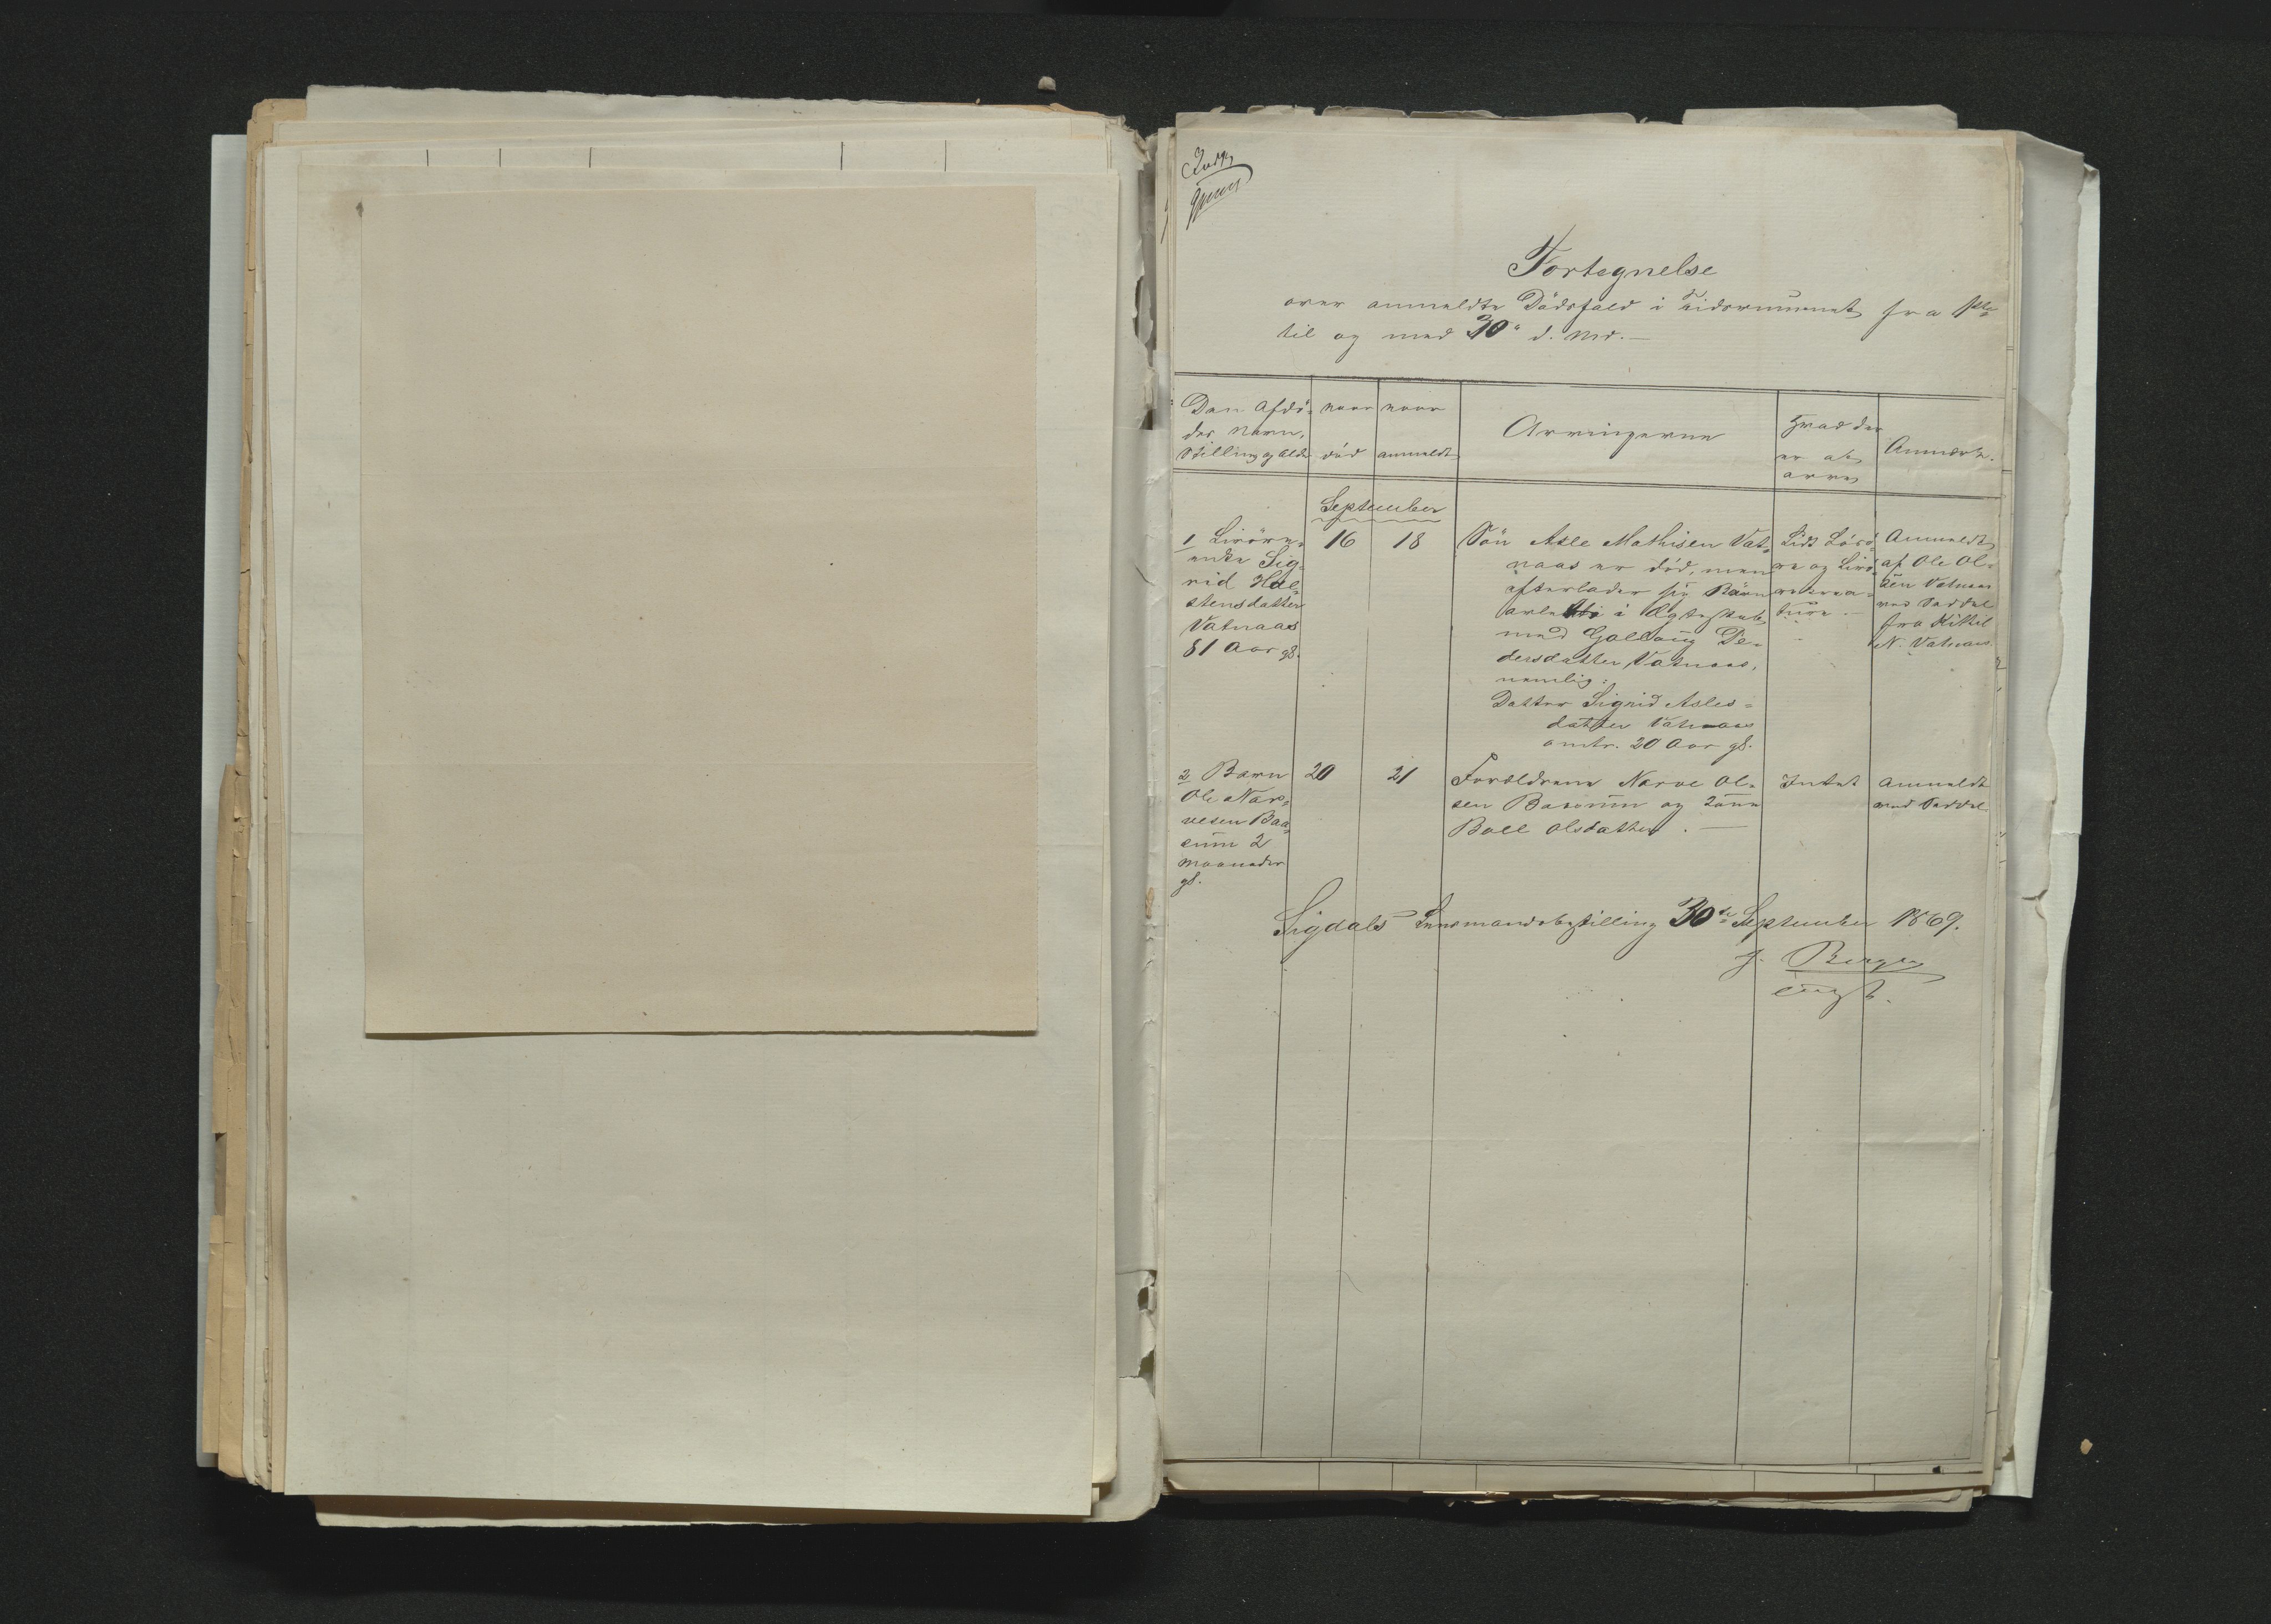 Fortegnelse
over anmeldte Dödsfald i Tidsrummet fra 1ste
til og med 30te d. Md. —
Den Afdö-
des Navn,
Stilling og Alder
naar
död
naar
anmeldt
Arvingerne
Hvad der
er at
arve
Anmærk.
September
1 Livöre-
enke Sig-
rid Hal-
stensdatter
Vatnaas
81 Aar gl.
16
18
Sön Asle Mathisen Vat-
naas er död, men
efterlader sig Börn
avlede i Ægteskab
med Gollaug Pe-
dersdatter Vatnaas,
nemlig:
Datter Sigrid Asles-
datter Vatnaas
omtr. 20 Aar gl.
Lidt Lösö-
re og Livö-
rekrea-
ture. —
Anmeldt
af Ole Ol-
sen Vatnaas
med Seddel
fra Kittil
N. Vatnaas.
2 Barn
Ole Nar-
vesen Baa-
sum 2
Maaneder
gl.
20
21
Forældrene Narve Ol-
sen Baasum og Kone
Boel Olsdatter. —
Intet
Anmeldt
med Seddel
Sigdals Lensmandsbestilling 30te September 1869.
J. Berger